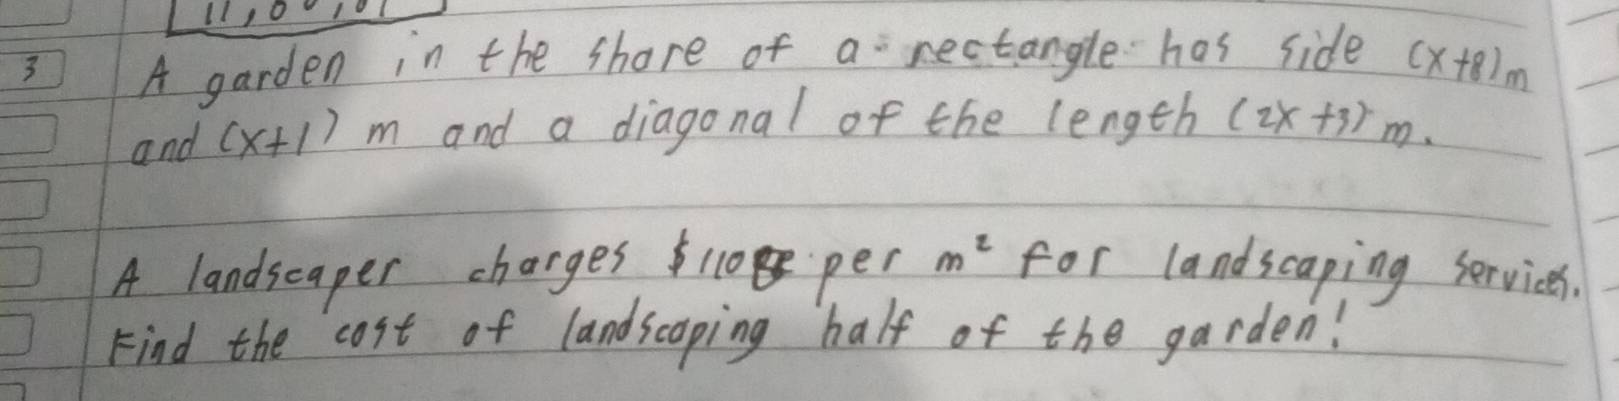 11,00,01
3 A garden in the share of a rectangle has side (x+8)m
and (x+1) m and a diagonal of the length (2x+3) m.
A landscaper charges $110 per m² for landscaping services.
Find the cost of landscaping half of the garden!